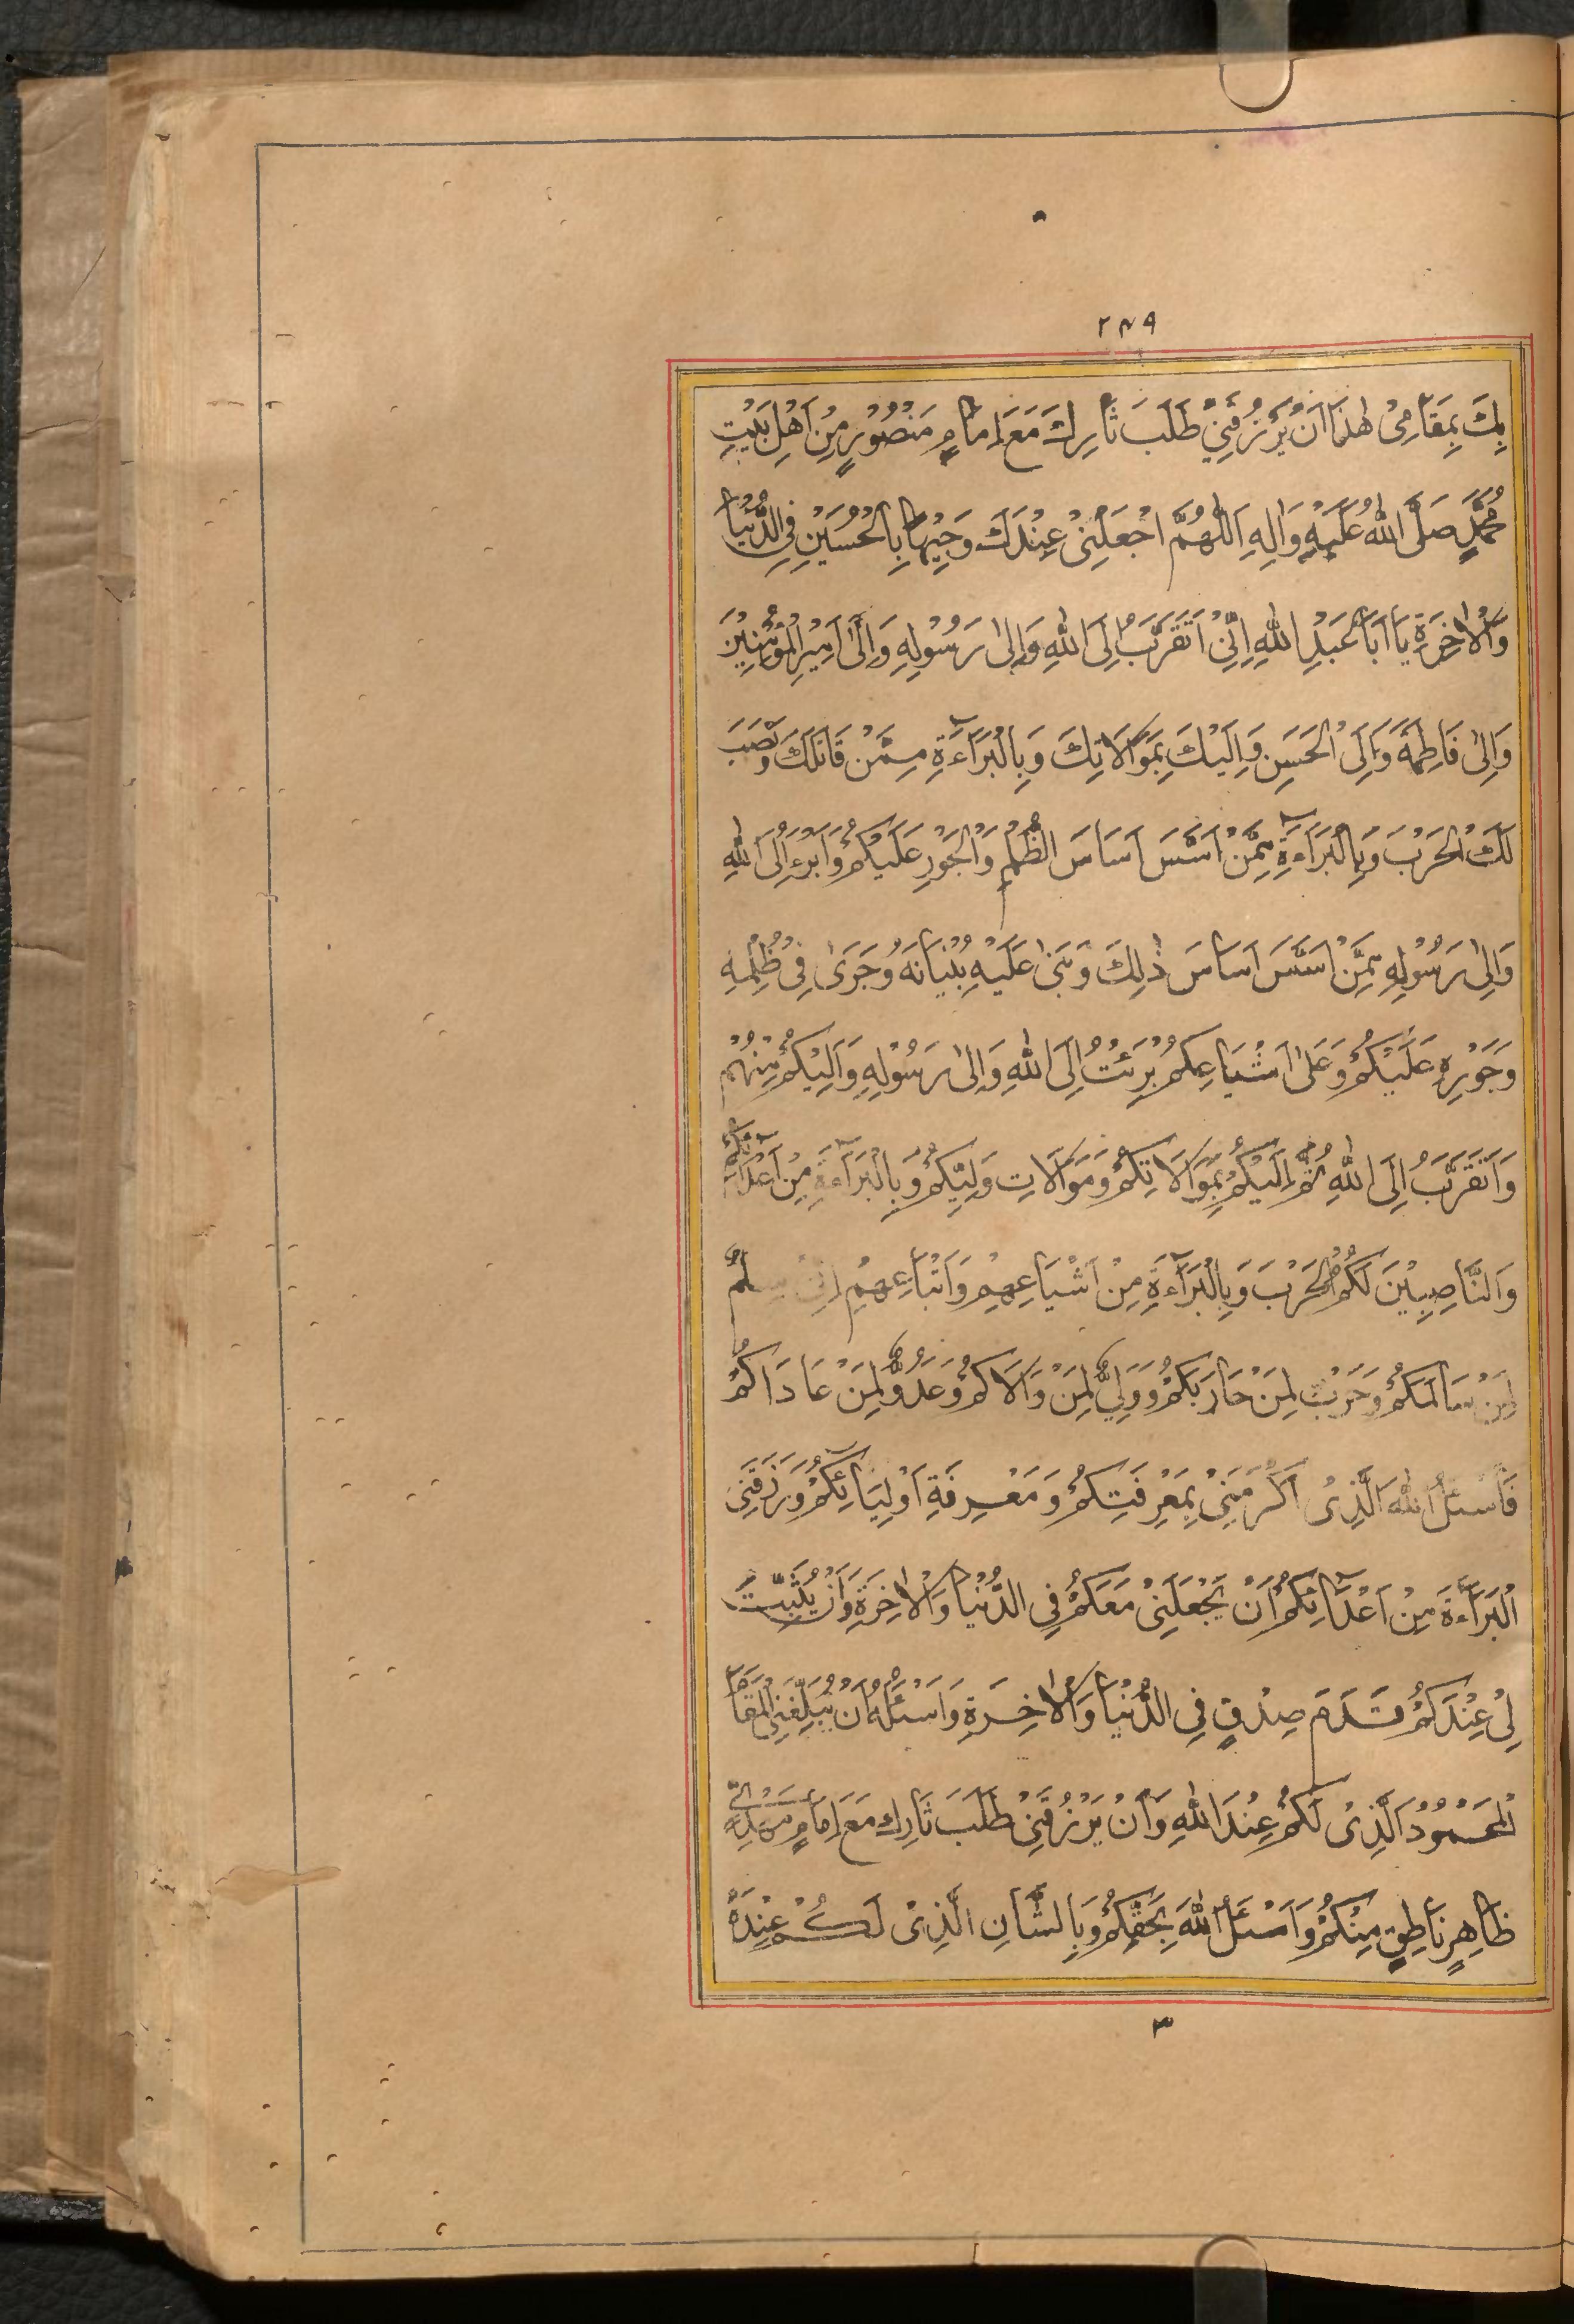 ۲۴۹
بِكَ بِمَقَامِىْ هٰذَا اَنْ يَرْزُقَنِىْ طَلَبَ ثَارِكَ مَعَ اِمَامٍ مَنْصُوْرٍ مِنْ اَهْلِ بَيْتِ
مُحَمَّدٍ صَلَّى اللهُ عَلَيْهِ وَاٰلِهِ اَللّٰهُمَّ اجْعَلْنِىْ عِنْدَكَ وَجِيْهًا بِالْحُسَيْنِ فِى الدُّنْيَا
وَالْاٰخِرَةِ يَا اَبَا عَبْدِ اللهِ اِنِّىْ اَتَقَرَّبُ اِلَى اللهِ وَاِلٰى رَسُوْلِهِ وَاِلٰى اَمِيْرِ الْمُؤْمِنِيْنَ
وَاِلٰى فَاطِمَةَ وَاِلَى الْحَسَنِ وَاِلَيْكَ بِمَوَالَاتِكَ وَبِالْبَرَآءَةِ مِمَّنْ قَاتَلَكَ وَنَصَبَ
لَكَ الْحَرْبَ وَبِالْبَرَآءَةِ مِمَّنْ اَسَّسَ اَسَاسَ الظُّلْمِ وَالْجَوْرِ عَلَيْكُمْ وَاَبْرَءُ اِلَى اللهِ
وَاِلٰى رَسُوْلِهِ مِمَّنْ اَسَّسَ اَسَاسَ ذٰلِكَ وَبَنٰى عَلَيْهِ بُنْيَانَهُ وَجَرٰى فِىْ ظُلْمِهِ
وَجَوْرِهِ عَلَيْكُمْ وَعَلٰى اَشْيَاعِكُمْ بَرِئْتُ اِلَى اللهِ وَاِلٰى رَسُوْلِهِ وَاِلَيْكُمْ مِنْهُمْ
وَاَتَقَرَّبُ اِلَى اللهِ ثُمَّ اِلَيْكُمْ بِمَوَالَاتِكُمْ وَمَوَالَاتِ وَلِيِّكُمْ وَبِالْبَرَآءَةِ مِنْ اَعْدَآئِكُمْ
وَالنَّاصِبِيْنَ لَكُمُ الْحَرْبَ وَبِالْبَرَآءَةِ مِنْ اَشْيَاعِهِمْ وَاَتْبَاعِهِمْ اِنِّىْ سِلْمٌ
لِمَنْ سَالَمَكُمْ وَحَرْبٌ لِمَنْ حَارَبَكُمْ وَوَلِىٌّ لِمَنْ وَالَاكُمْ وَعَدُوٌّ لِمَنْ عَادَاكُمْ
فَاَسْئَلُ اللهَ الَّذِىْ اَكْرَمَنِىْ بِمَعْرِفَتِكُمْ وَمَعْرِفَةِ اَوْلِيَائِكُمْ وَرَزَقَنِى
الْبَرَآءَةَ مِنْ اَعْدَآئِكُمْ اَنْ يَجْعَلَنِىْ مَعَكُمْ فِى الدُّنْيَا وَالْاٰخِرَةِ وَاَنْ يُثَبِّتَ
لِىْ عِنْدَكُمْ قَدَمَ صِدْقٍ فِى الدُّنْيَا وَالْاٰخِرَةِ وَاَسْئَلُهُ اَنْ يُبَلِّغَنِى الْمَقَامَ
الْمَحْمُوْدَ الَّذِىْ لَكُمْ عِنْدَ اللهِ وَاَنْ يَرْزُقَنِىْ طَلَبَ ثَارِكَ مَعَ اِمَامٍ
ظَاهِرٍ نَاطِقٍ مِنْكُمْ وَاَسْئَلُ اللهَ بِحَقِّكُمْ وَبِالشَّانِ الَّذِىْ لَكُمْ عِنْدَهُ
۳